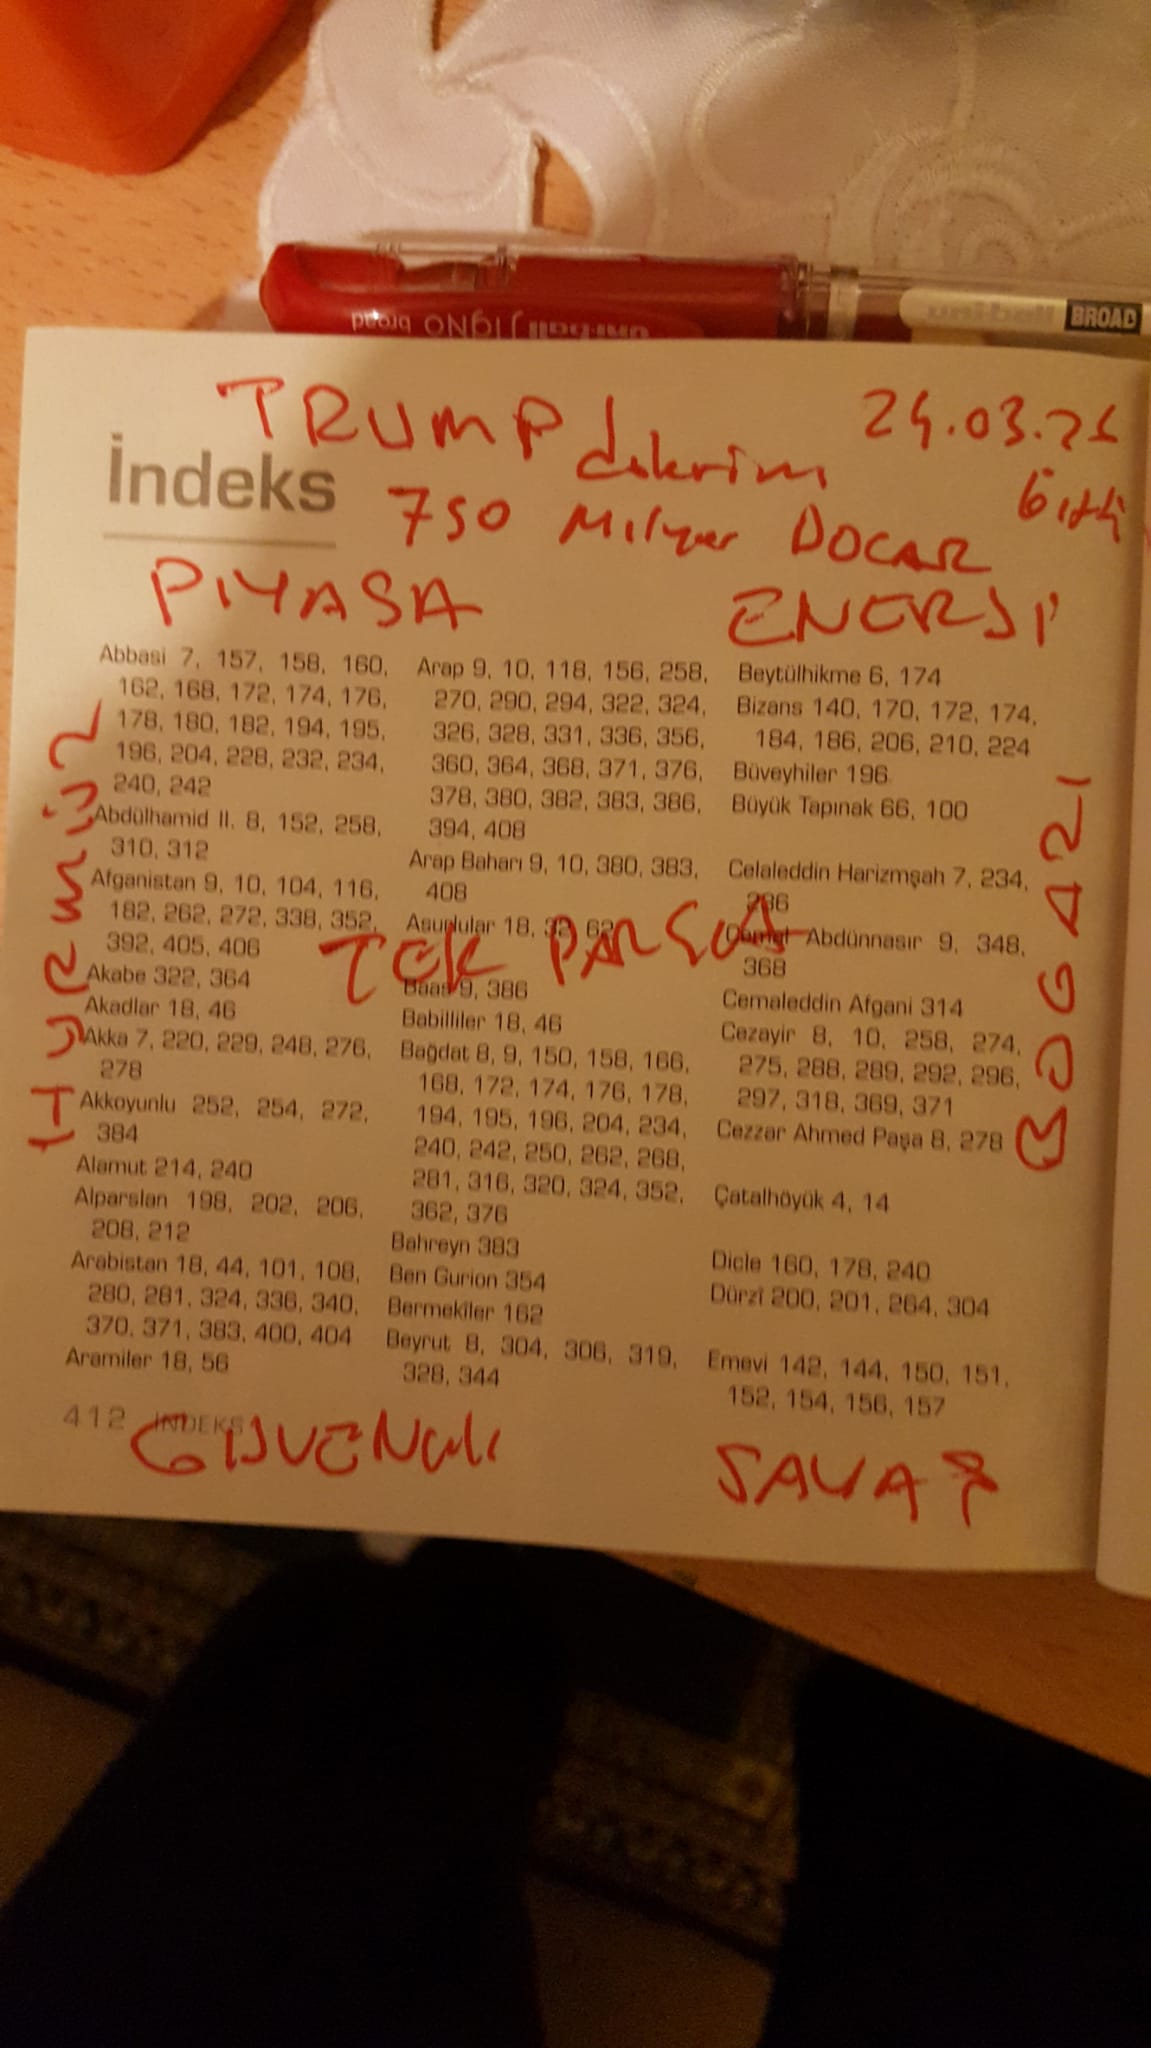 uni-ball SIGNO broad
uni-ball BROAD
TRUMP
24.03.26
İndeks
750 Milyar DOLAR
PIYASA
ENERJI
HÜRMÜZ
BOGAZI
TEK PARÇA
Abbasi 7, 157, 158, 160,
162, 168, 172, 174, 176,
178, 180, 182, 194, 195,
196, 204, 228, 232, 234,
240, 242
Abdülhamid II. 8, 152, 258,
310, 312
Afganistan 9, 10, 104, 116,
182, 262, 272, 338, 352,
392, 405, 406
Akabe 322, 364
Akadlar 18, 46
Akka 7, 220, 229, 248, 276,
278
Akkoyunlu 252, 254, 272,
384
Alamut 214, 240
Alparslan 198, 202, 206,
208, 212
Arabistan 18, 44, 101, 108,
280, 281, 324, 336, 340,
370, 371, 383, 400, 404
Aramiler 18, 56
Arap 9, 10, 118, 156, 258,
270, 290, 294, 322, 324,
326, 328, 331, 336, 356,
360, 364, 368, 371, 376,
378, 380, 382, 383, 386,
394, 408
Arap Baharı 9, 10, 380, 383,
408
Asurlular 18, 32, 62
Baas 9, 386
Babilliler 18, 46
Bağdat 8, 9, 150, 158, 166,
168, 172, 174, 176, 178,
194, 195, 196, 204, 234,
240, 242, 250, 262, 268,
281, 316, 320, 324, 352,
362, 376
Bahreyn 383
Ben Gurion 354
Bermekîler 162
Beyrut 8, 304, 306, 319,
328, 344
Beytülhikme 6, 174
Bizans 140, 170, 172, 174,
184, 186, 206, 210, 224
Büveyhiler 196
Büyük Tapınak 66, 100
Celaleddin Harizmşah 7, 234,
236
Cemal Abdünnasır 9, 348,
368
Cemaleddin Afgani 314
Cezayir 8, 10, 258, 274,
275, 288, 289, 292, 296,
297, 318, 369, 371
Cezzar Ahmed Paşa 8, 278
Çatalhöyük 4, 14
Dicle 160, 178, 240
Dürzî 200, 201, 264, 304
Emevi 142, 144, 150, 151,
152, 154, 156, 157
412 İNDEKS
GÜVENLİ
SAVAŞ